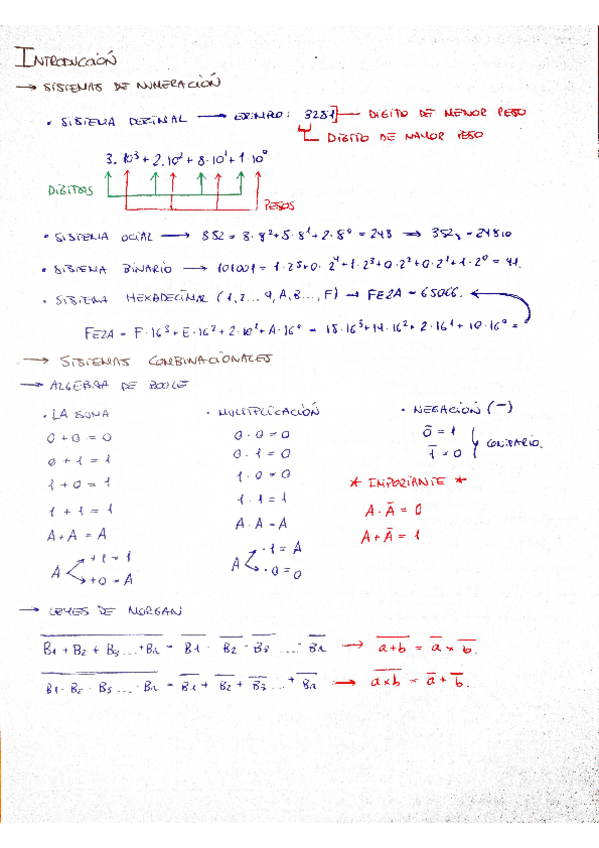 INTRODUCCIÓN
→ SISTEMAS DE NUMERACIÓN
• SISTEMA DECIMAL → EJEMPLO: 3281 — DIGITO DE MENOR PESO
DIGITO DE MAYOR PESO
3·10³ + 2·10² + 8·10¹ + 1·10⁰
DIGITOS
PESOS
• SISTEMA OCTAL → 352 = 3·8² + 5·8¹ + 2·8⁰ = 243 ⇒ 352₈ = 24310
• SISTEMA BINARIO → 101001 = 1·2⁵ + 0·2⁴ + 1·2³ + 0·2² + 0·2¹ + 1·2⁰ = 41.
• SISTEMA HEXADECIMAL (1, 2 ... 9, A, B ..., F) → FE2A = 65066.
FE2A = F·16³ + E·16² + 2·10¹ + A·16⁰ = 15·16³ + 14·16² + 2·16¹ + 10·16⁰ =
→ SISTEMAS COMBINACIONALES
→ ALGEBRA DE BOOLE
• LA SUMA
0 + 0 = 0
0 + 1 = 1
1 + 0 = 1
1 + 1 = 1
A + A = A
A < +1 = 1
+0 = A
• MULTIPLICACIÓN
0 · 0 = 0
0 · 1 = 0
1 · 0 = 0
1 · 1 = 1
A · A = A
A < ·1 = A
·0 = 0
• NEGACIÓN (−)
0̅ = 1
1̅ = 0 } CONTRARIO.
* IMPORTANTE *
A · A̅ = 0
A + A̅ = 1
→ LEYES DE MORGAN
B̅1̅ ̅+̅ ̅B̅2̅ ̅+̅ ̅B̅3̅ ̅.̅.̅.̅ ̅+̅ ̅B̅n̅ = B̅1̅ · B̅2̅ · B̅3̅ ... · B̅n̅ → a̅+̅b̅ = a̅ × b̅.
B̅1̅ ̅·̅ ̅B̅2̅ ̅·̅ ̅B̅3̅ ̅.̅.̅.̅ ̅·̅ ̅B̅n̅ = B̅1̅ + B̅2̅ + B̅3̅ ... + B̅n̅ → a̅×̅b̅ = a̅ + b̅.